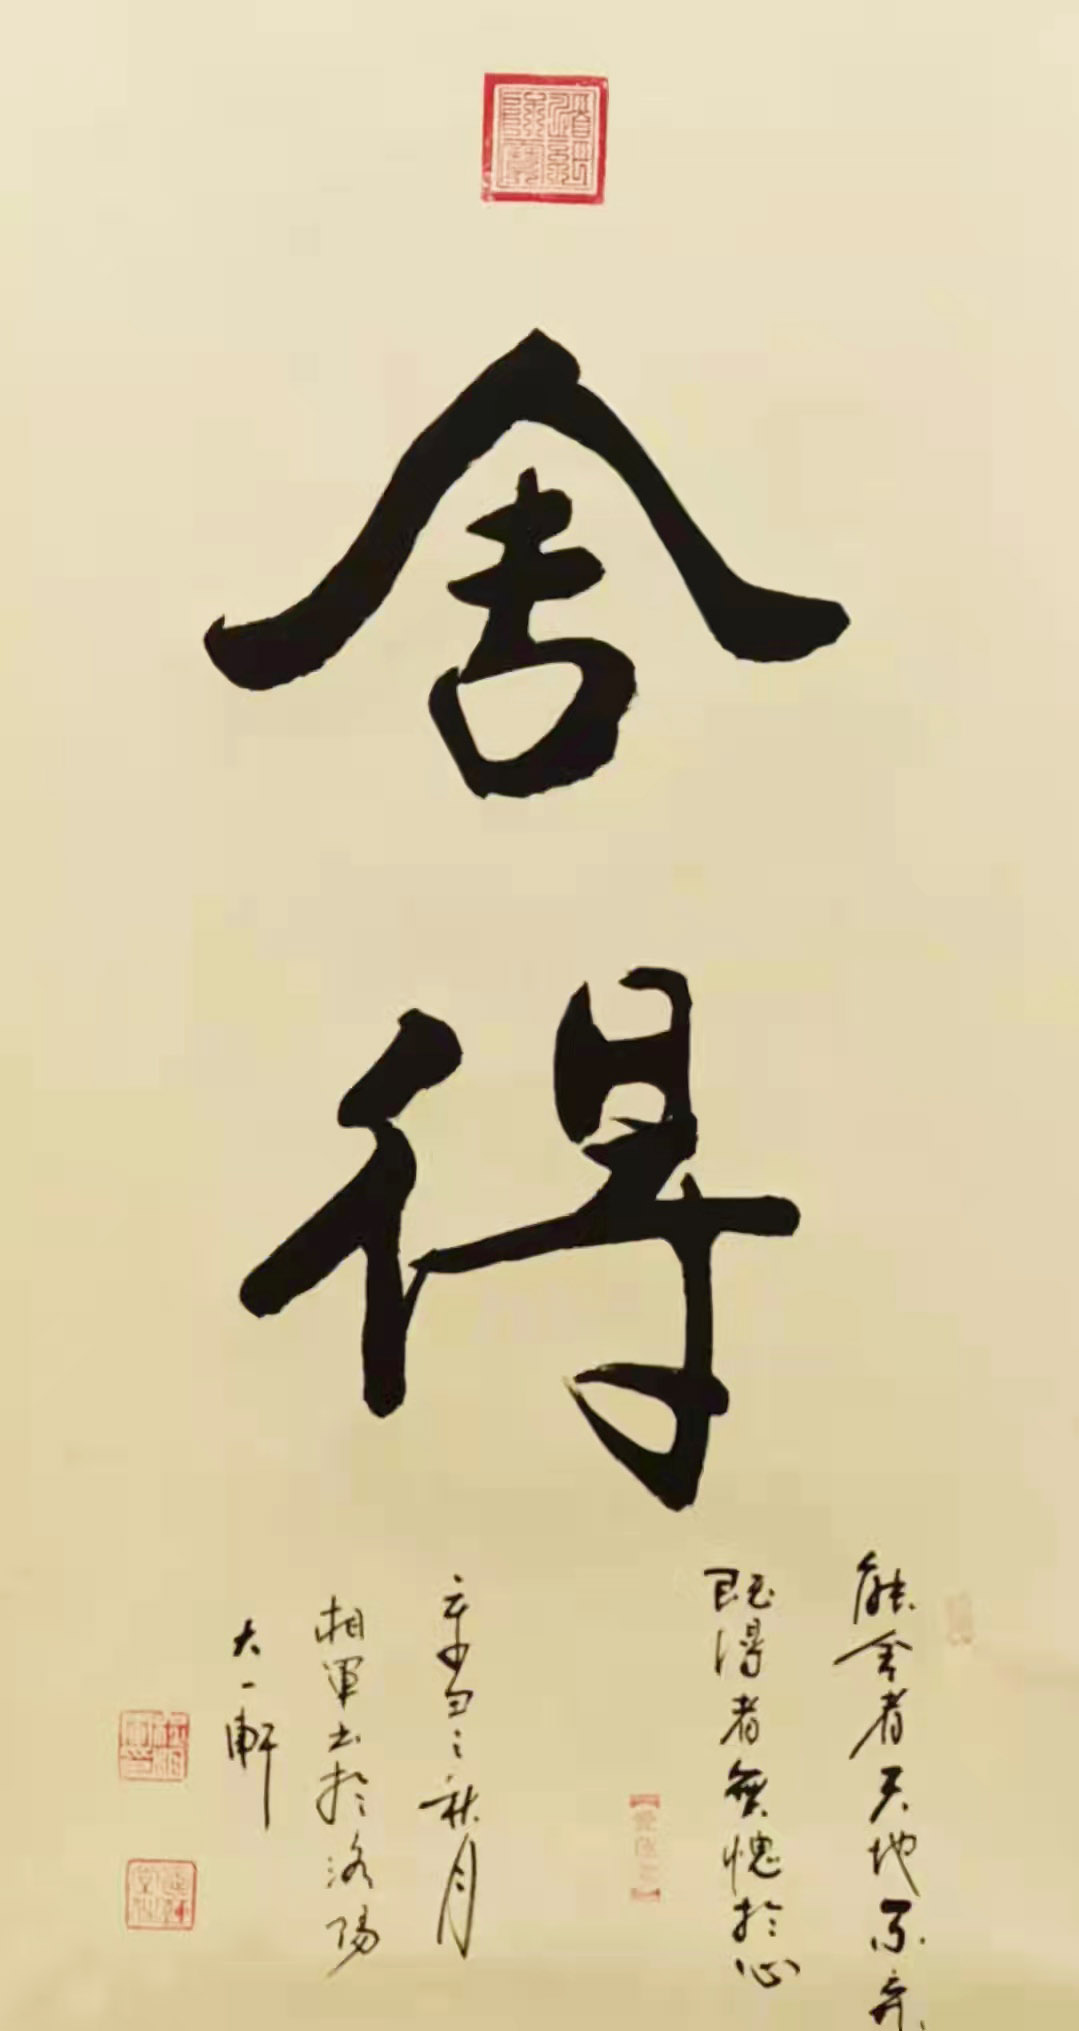 舍
得
能舍者天地不弃
既得者無愧於心
辛丑之秋月
相軍书於洛陽
大一軒